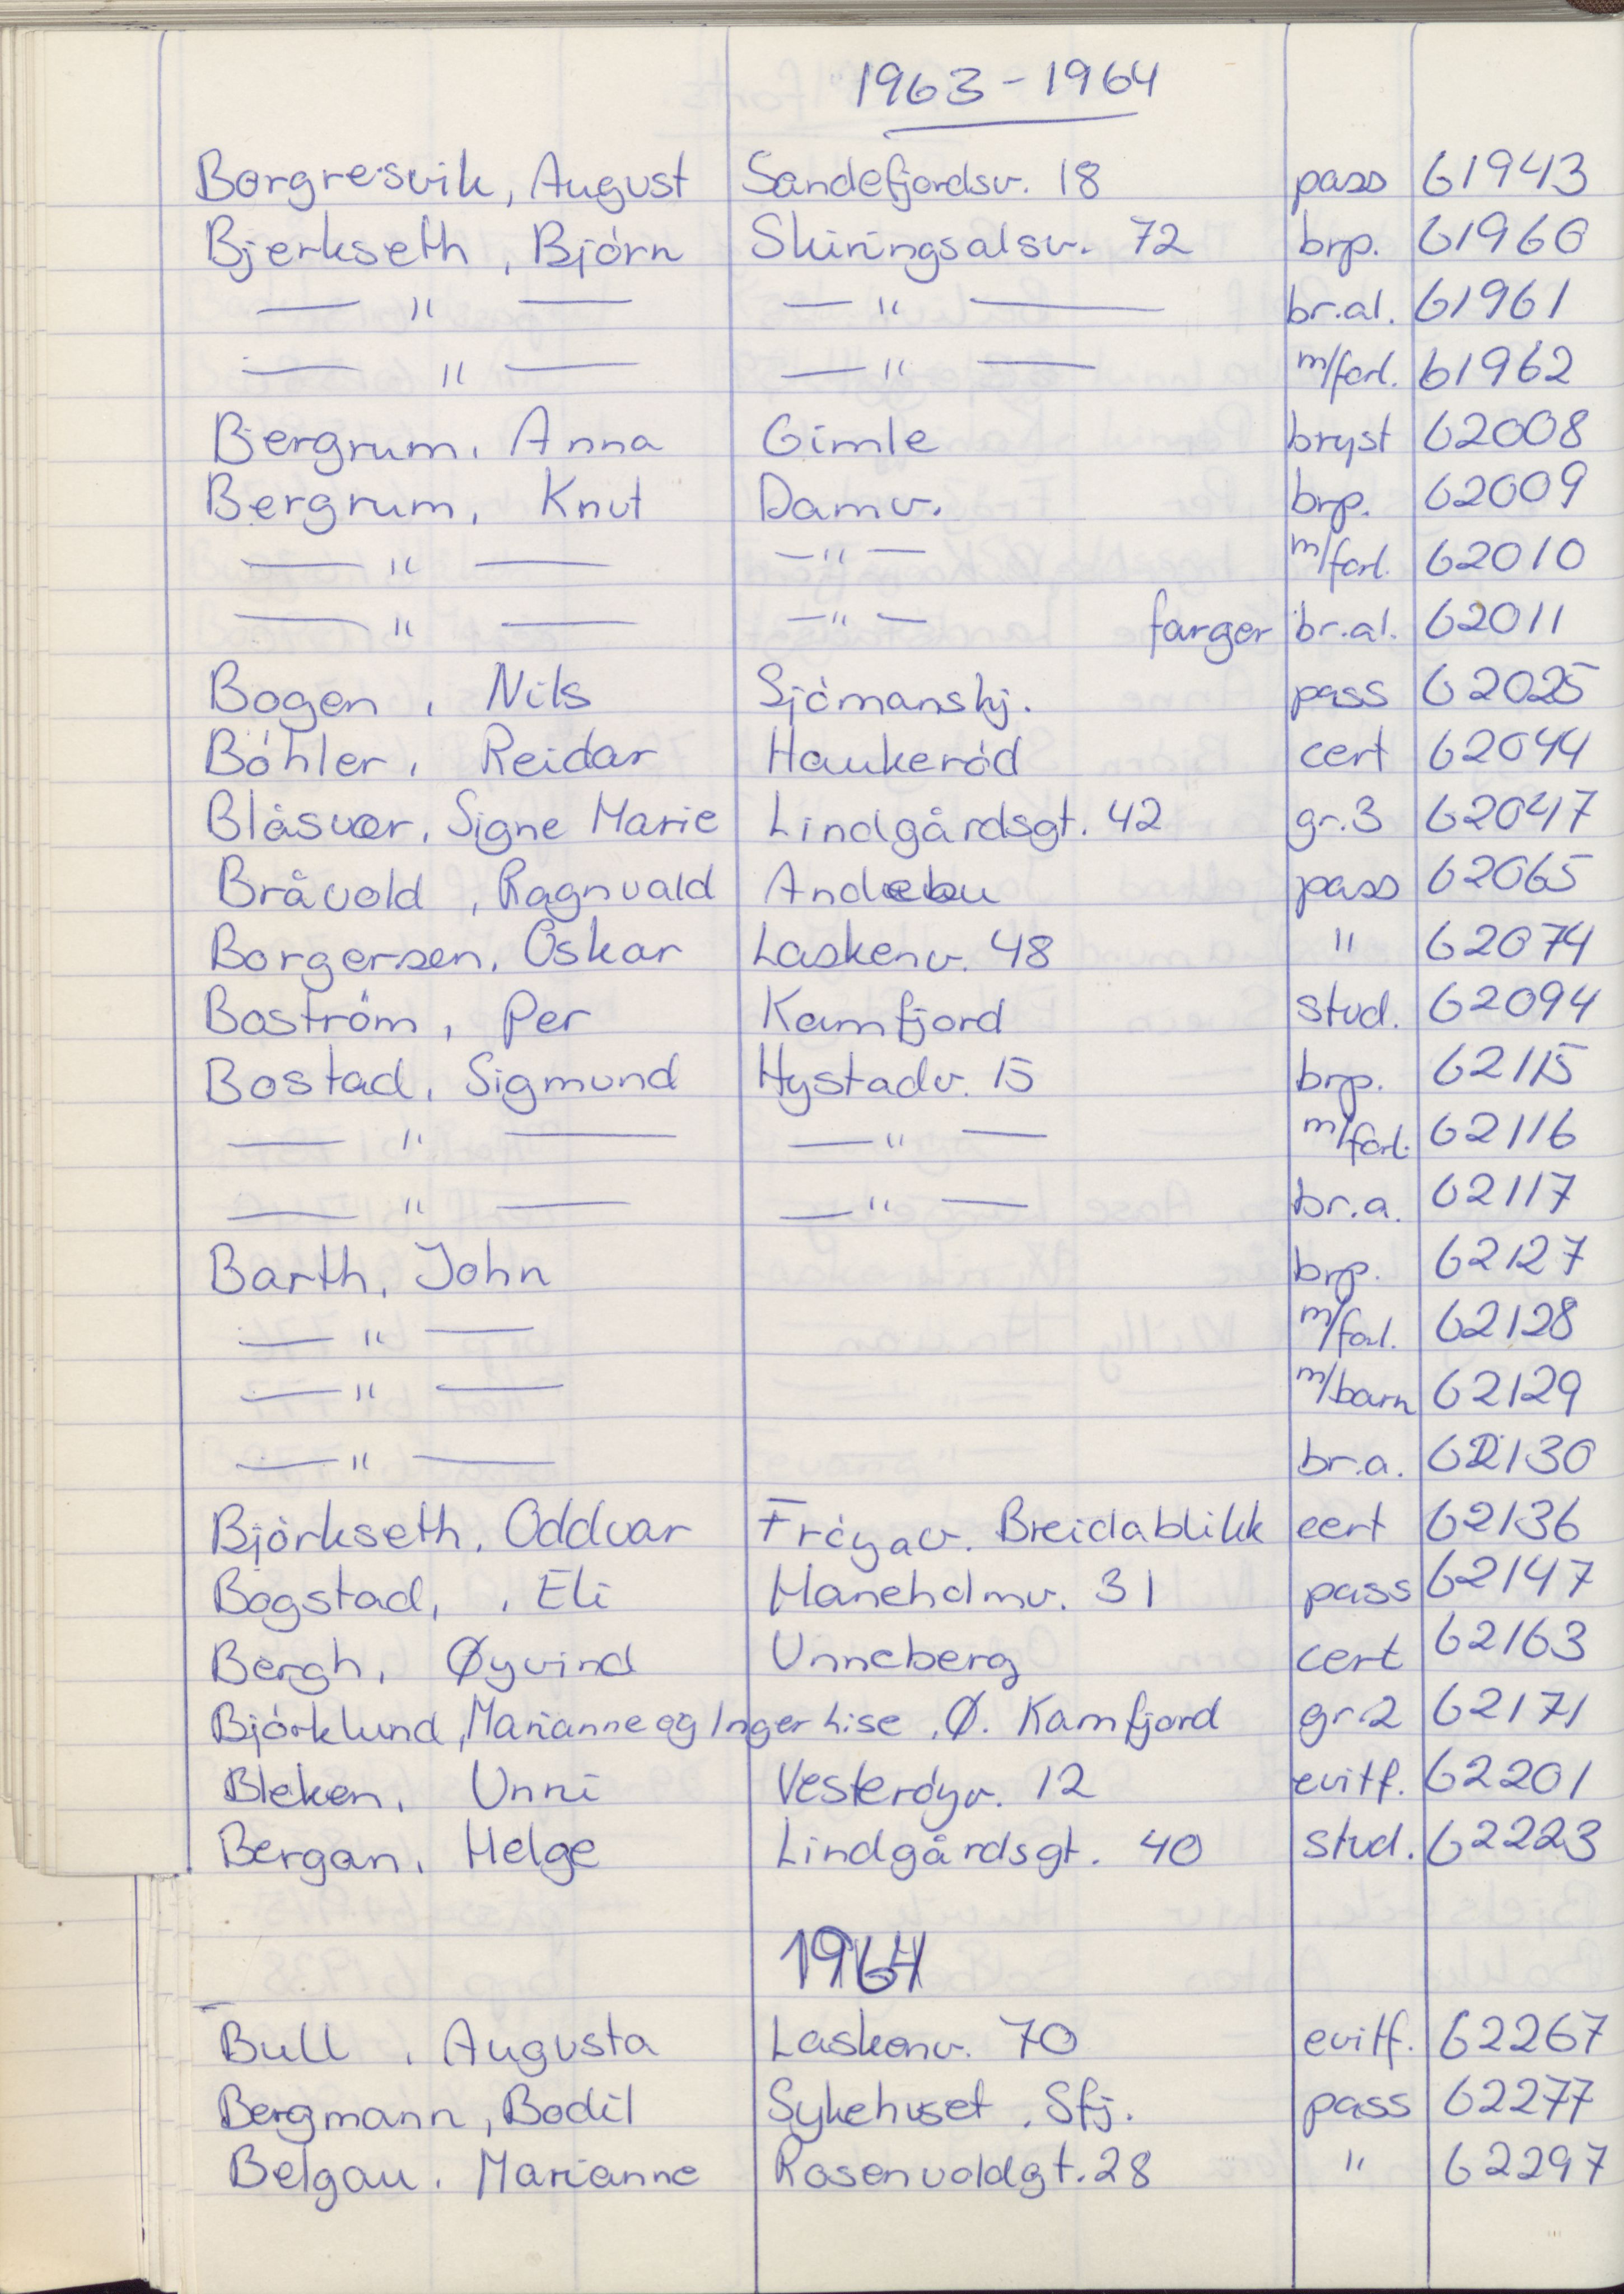 1963 - 1964
Borgresvik, August Sandefjordsv. 18 pass 61943
Bjerkseth, Björn Skiringsalsv. 72 brp. 61960
— " — — " — br.al. 61961
— " — — " — m/forl. 61962
Bergrum, Anna Gimle bryst 62008
Bergrum, Knut Damv. brp. 62009
— " — — " — m/forl. 62010
— " — — " — farger br.al. 62011
Bogen, Nils Sjömanskj. pass 62025
Böhler, Reidar Haukeröd cert 62044
Blåsvær, Signe Marie Lindgårdsgt. 42 gr.3 62047
Bråvold, Ragnvald Andebu pass 62065
Borgersen, Oskar Laskenv. 48 " 62074
Boström, Per Kamfjord stud. 62094
Bostad, Sigmund Hystadv. 15 brp. 62115
— " — — " — m/forl. 62116
— " — — " — br.a. 62117
Barth, John brp. 62127
— " — m/forl. 62128
— " — m/barn 62129
— " — br.a. 62130
Björkseth, Oddvar Fröyav. Breidablikk cert 62136
Bögstad, Eli Haneholmv. 31 pass 62147
Bergh, Øyvind Unneberg cert 62163
Björklund, Marianne og Inger Lise, Ø. Kamfjord gr.2 62171
Bleken, Unni Vesteröyv. 12 evitf. 62201
Bergan, Helge Lindgårdsgt. 40 stud. 62223
1964
Bull, Augusta Laskenv. 70 evitf. 62267
Bergmann, Bodil Sykehuset, Sfj. pass 62277
Belgau, Marianne Rosenvoldgt. 28 " 62297